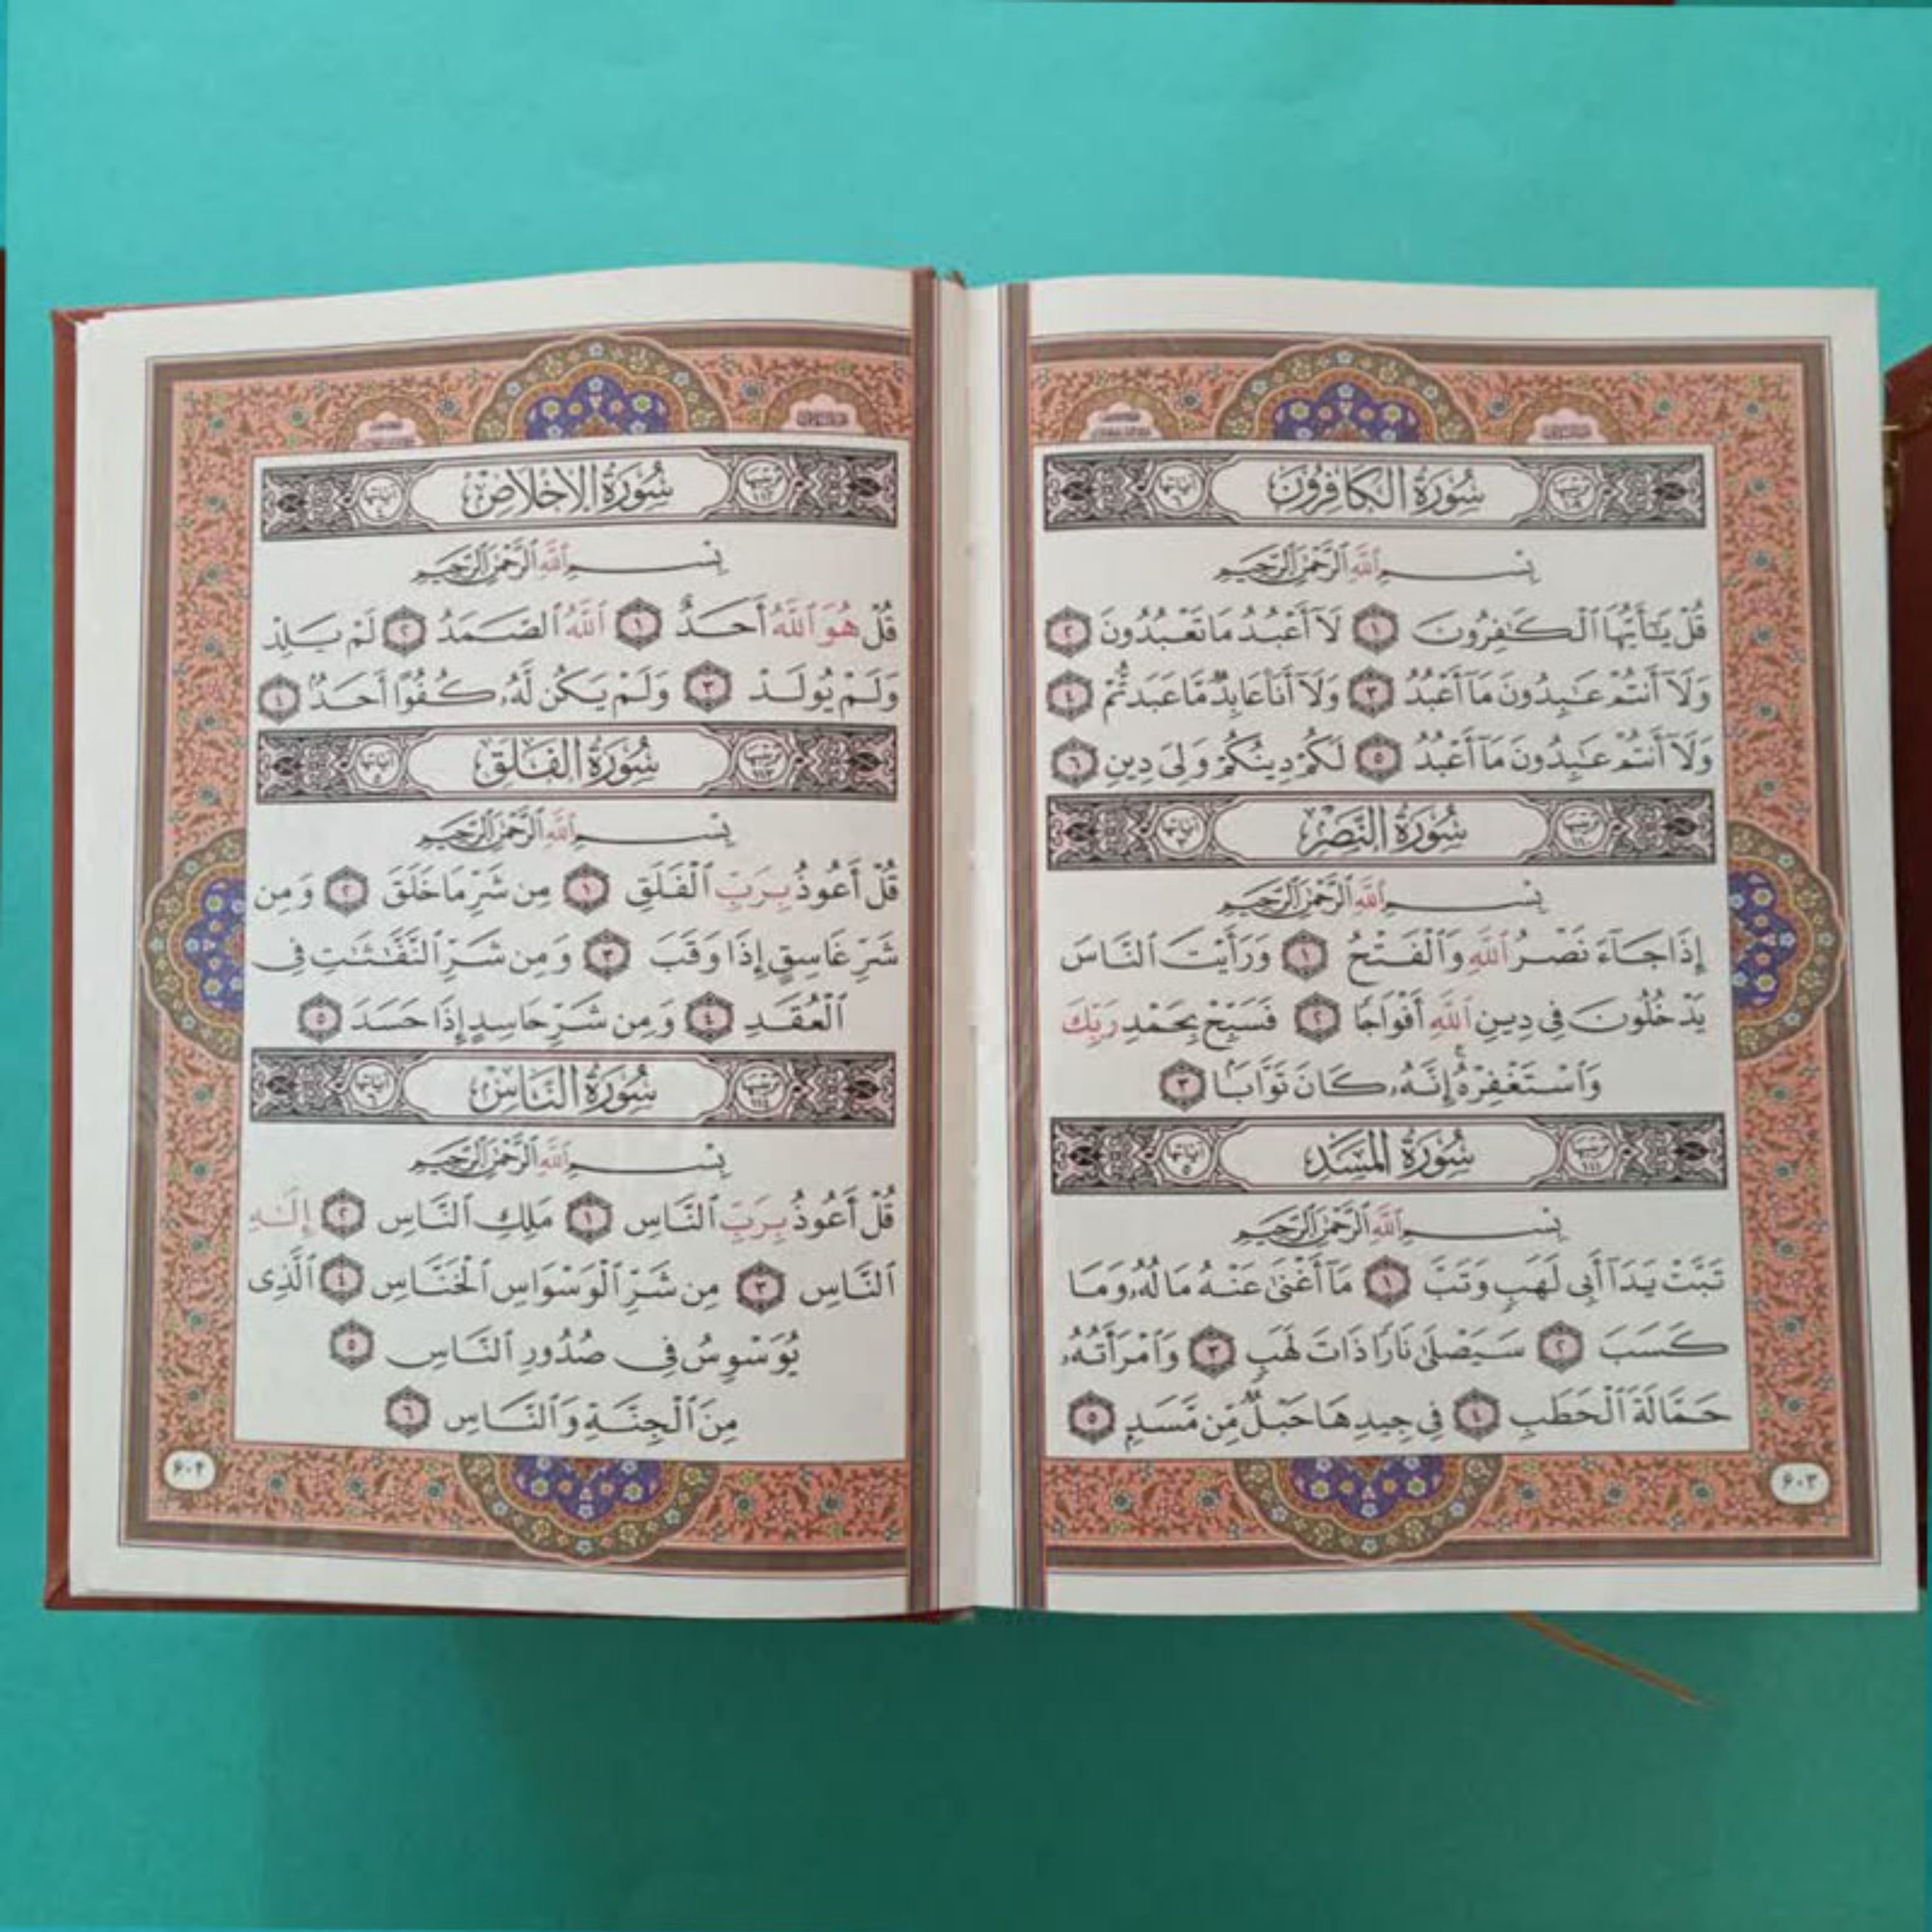 سُورَةُ الكَافِرُونَ
بِسْمِ ٱللَّهِ ٱلرَّحْمَٰنِ ٱلرَّحِيمِ
قُلْ يَٰٓأَيُّهَا ٱلْكَٰفِرُونَ ١ لَآ أَعْبُدُ مَا تَعْبُدُونَ ٢
وَلَآ أَنتُمْ عَٰبِدُونَ مَآ أَعْبُدُ ٣ وَلَآ أَنَا۠ عَابِدٌ مَّا عَبَدتُّمْ ٤
وَلَآ أَنتُمْ عَٰبِدُونَ مَآ أَعْبُدُ ٥ لَكُمْ دِينُكُمْ وَلِىَ دِينِ ٦
سُورَةُ النَّصْرِ
بِسْمِ ٱللَّهِ ٱلرَّحْمَٰنِ ٱلرَّحِيمِ
إِذَا جَآءَ نَصْرُ ٱللَّهِ وَٱلْفَتْحُ ١ وَرَأَيْتَ ٱلنَّاسَ
يَدْخُلُونَ فِى دِينِ ٱللَّهِ أَفْوَاجًا ٢ فَسَبِّحْ بِحَمْدِ رَبِّكَ
وَٱسْتَغْفِرْهُ ۚ إِنَّهُۥ كَانَ تَوَّابًۢا ٣
سُورَةُ المَسَدِ
بِسْمِ ٱللَّهِ ٱلرَّحْمَٰنِ ٱلرَّحِيمِ
تَبَّتْ يَدَآ أَبِى لَهَبٍ وَتَبَّ ١ مَآ أَغْنَىٰ عَنْهُ مَالُهُۥ وَمَا
كَسَبَ ٢ سَيَصْلَىٰ نَارًا ذَاتَ لَهَبٍ ٣ وَٱمْرَأَتُهُۥ
حَمَّالَةَ ٱلْحَطَبِ ٤ فِى جِيدِهَا حَبْلٌ مِّن مَّسَدٍۭ ٥
۶۰۳
سُورَةُ الإِخْلَاصِ
بِسْمِ ٱللَّهِ ٱلرَّحْمَٰنِ ٱلرَّحِيمِ
قُلْ هُوَ ٱللَّهُ أَحَدٌ ١ ٱللَّهُ ٱلصَّمَدُ ٢ لَمْ يَلِدْ
وَلَمْ يُولَدْ ٣ وَلَمْ يَكُن لَّهُۥ كُفُوًا أَحَدٌۢ ٤
سُورَةُ الفَلَقِ
بِسْمِ ٱللَّهِ ٱلرَّحْمَٰنِ ٱلرَّحِيمِ
قُلْ أَعُوذُ بِرَبِّ ٱلْفَلَقِ ١ مِن شَرِّ مَا خَلَقَ ٢ وَمِن
شَرِّ غَاسِقٍ إِذَا وَقَبَ ٣ وَمِن شَرِّ ٱلنَّفَّٰثَٰتِ فِى
ٱلْعُقَدِ ٤ وَمِن شَرِّ حَاسِدٍ إِذَا حَسَدَ ٥
سُورَةُ النَّاسِ
بِسْمِ ٱللَّهِ ٱلرَّحْمَٰنِ ٱلرَّحِيمِ
قُلْ أَعُوذُ بِرَبِّ ٱلنَّاسِ ١ مَلِكِ ٱلنَّاسِ ٢ إِلَٰهِ
ٱلنَّاسِ ٣ مِن شَرِّ ٱلْوَسْوَاسِ ٱلْخَنَّاسِ ٤ ٱلَّذِى
يُوَسْوِسُ فِى صُدُورِ ٱلنَّاسِ ٥
مِنَ ٱلْجِنَّةِ وَٱلنَّاسِ ٦
۶۰۴